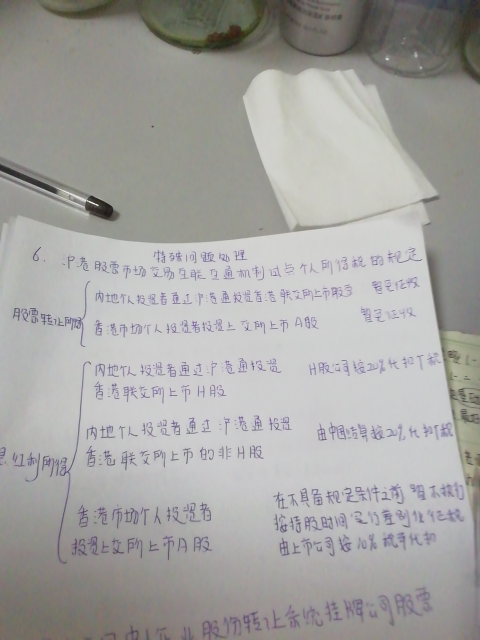 特殊问题处理
6. 沪港股票市场交易互联互通机制试点个人所得税的规定
股票转让所得
内地个人投资者通过沪港通投资香港联交所上市股票 暂免征收
香港市场个人投资者投资上交所上市A股 暂免征收
红利所得
内地个人投资者通过沪港通投资 H股公司按20%代扣个税
香港联交所上市H股
内地个人投资者通过沪港通投资 由中国结算按20%代扣个税
香港联交所上市的非H股
香港市场个人投资者 在不具备规定条件之前 暂不执行
投资上交所上市A股 按持股时间实行差别化征税
由上市公司按10%税率代扣
股份转让系统挂牌公司股票